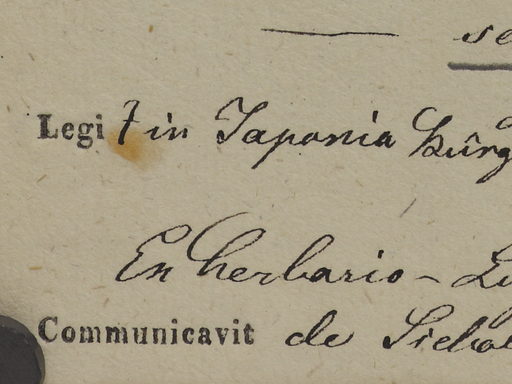 se
Legit in Japonia Bürg
Ex herbario - Lu
Communicavit de Siebol